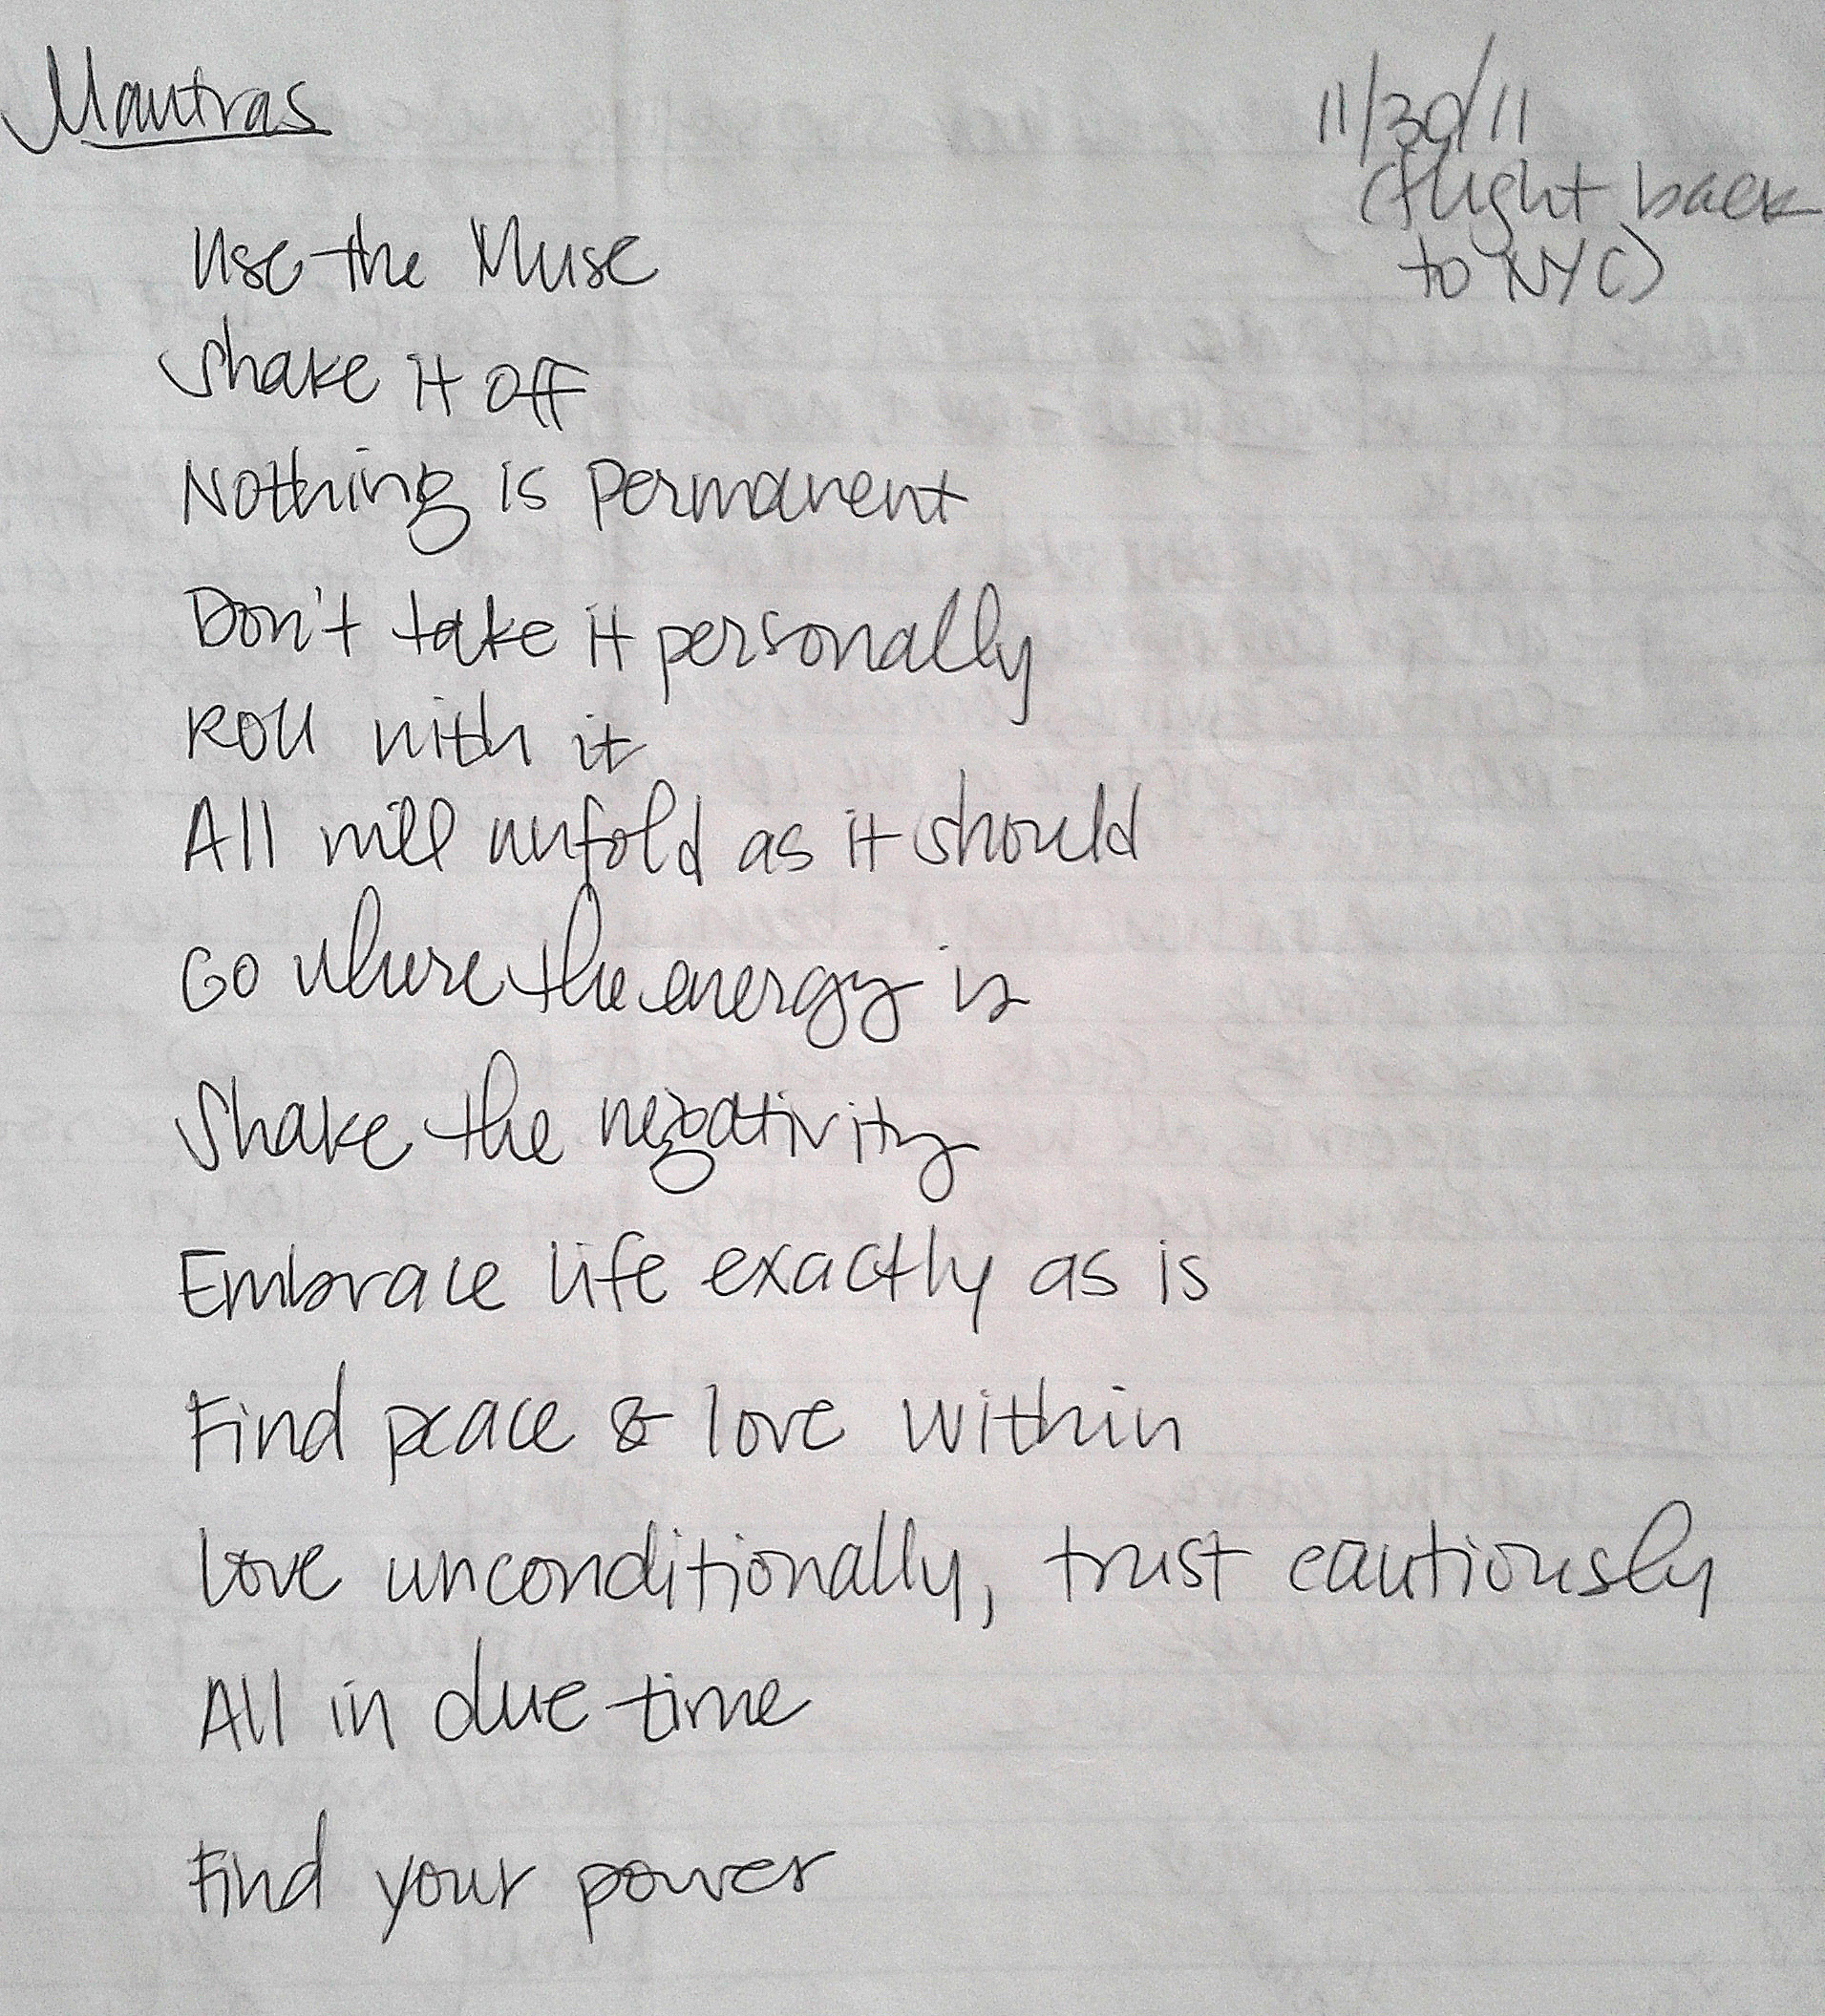 Mantras
11/30/11
(flight back
to NYC)
Use the Muse
Shake it off
Nothing is permanent
Don't take it personally
Roll with it
All will unfold as it should
Go where the energy is
Shake the negativity
Embrace life exactly as is
Find peace & love within
Love unconditionally, trust cautiously
All in due time
Find your power